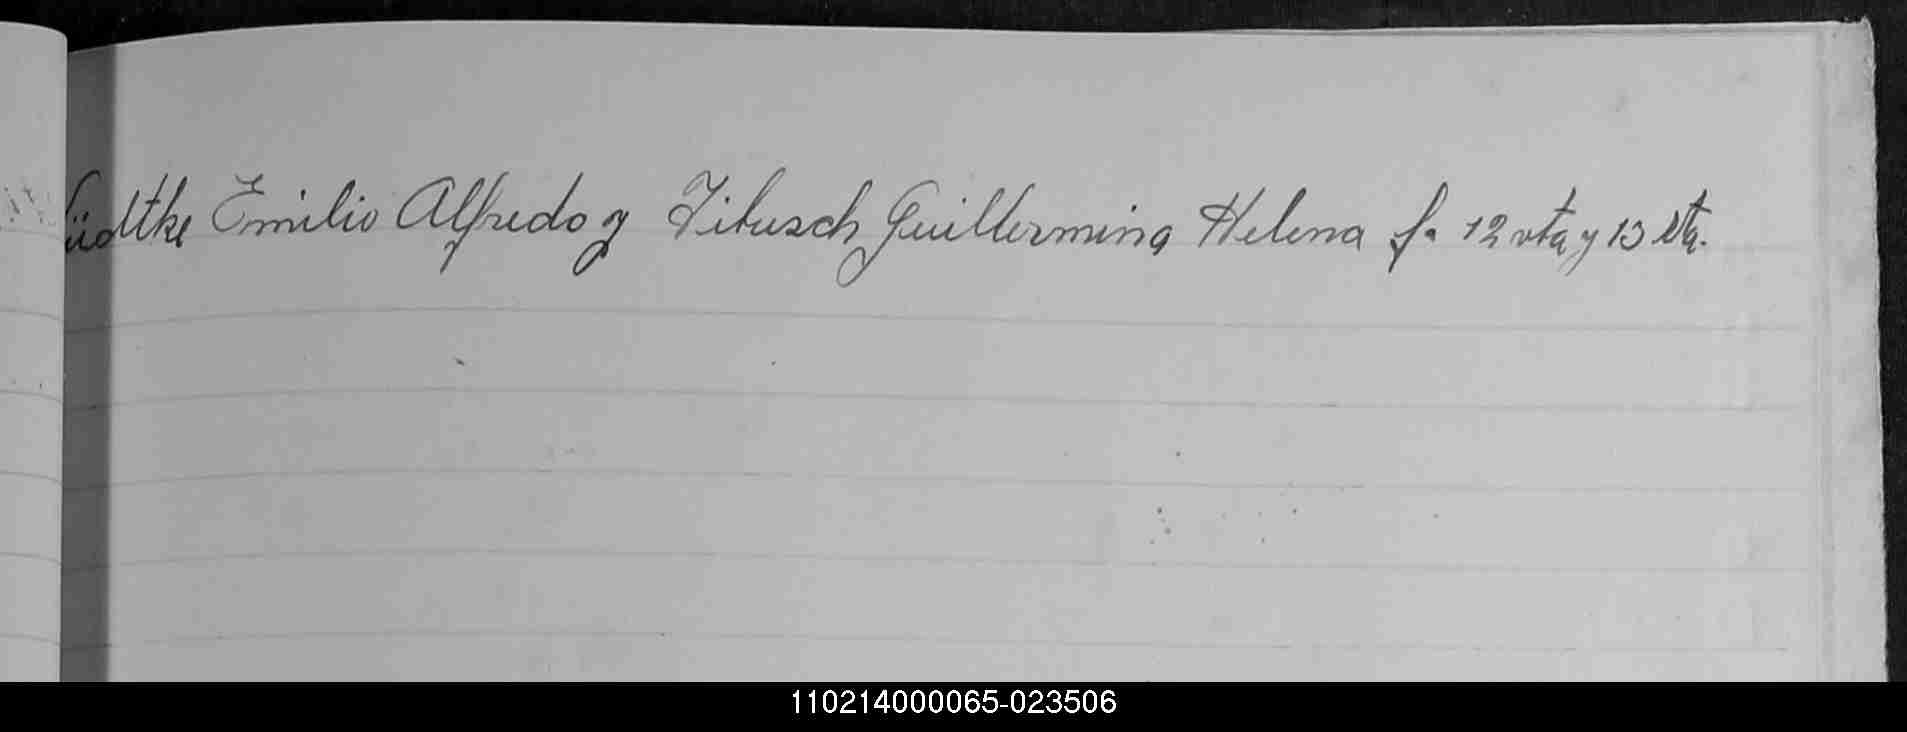 Lüdtke Emilio Alfredo y Titusch Guillermina Helena f. 12 vta y 13 vta.
110214000065-023506